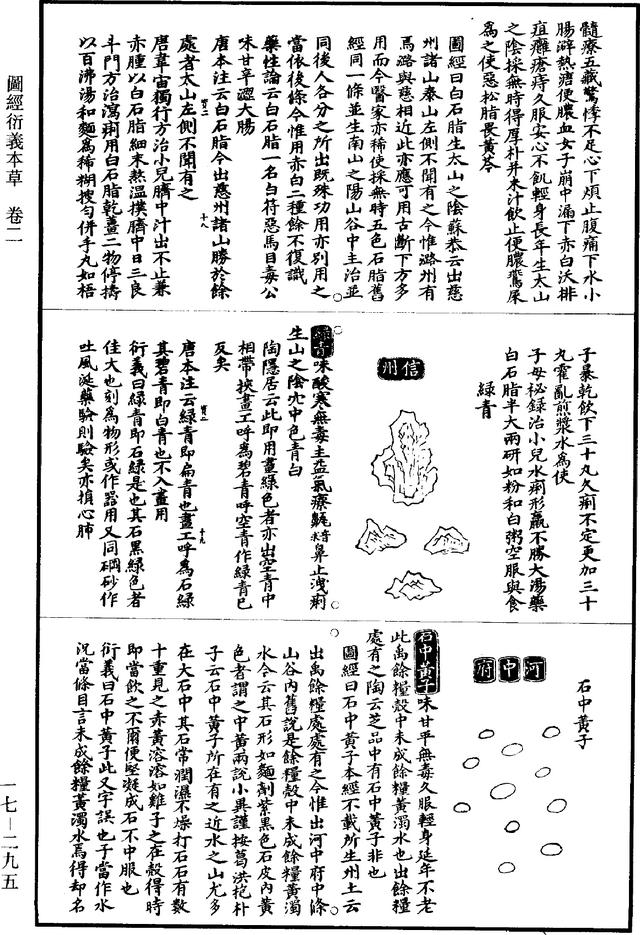 圖經衍義本草　卷二
髓療五藏驚悸不足心下煩止腹痛下水小
腸澼熱溏便膿血女子崩中漏下赤白沃排
疽癰瘡痔久服安心不飢輕身長年生太山
之陰採無時得厚朴并米汁飲止便膿鷰屎
為之使惡松脂畏黃芩
圖經曰白石脂生太山之陰蘇恭云出慈
州諸山泰山左側不聞有之今惟潞州有
焉潞與慈相近此亦應可用古斷下方多
用而今醫家亦稀使採無時五色石脂舊
經同一條並生南山之陽山谷中主治並
同後人各分之所出既殊功用亦別用之
當依後條今惟用赤白二種餘不復識
藥性論云白石脂一名白符惡馬目毒公
味甘辛澀大腸
唐本注云白石脂今出慈州諸山勝於餘
處者太山左側不聞有之
唐韋宙獨行方治小兒臍中汁出不止兼
赤腫以白石脂細末熬溫撲臍中日三良
斗門方治瀉痢用白石脂乾薑二物停擣
以百沸湯和麵為稀糊搜勻併手丸如梧
子暴乾飲下三十丸久痢不定更加三十
九霍亂煎漿水為使
子母秘錄治小兒水痢形羸不勝大湯藥
白石脂半大兩研如粉和白粥空服與食
綠青
信州
綠青味酸寒無毒主益氣療鼽鼻止洩痢
生山之陰穴中色青白
陶隱居云此即用畫綠色者亦出空青中
相帶挾畫工呼為碧青呼空青作綠青已
反矣
唐本注云綠青即扁青也畫工呼為石綠
其碧青即白青也不入畫用
衍義曰綠青即石綠是也其石黑綠色者
佳大也刻為物形或作器用又同硇砂作
吐風涎藥驗則驗矣亦損心肺
石中黃子
河中府
石中黃子味甘平無毒久服輕身延年不老
此禹餘糧殼中未成餘糧黃濁水也出餘糧
處有之陶云芝品中有石中黃子非也
圖經曰石中黃子本經不載所生州土云
出禹餘糧處處有之今惟出河中府中條
山谷內舊說是餘糧殼中未成餘糧黃濁
水今云其石形如麵劑紫黑色石皮內黃
色者謂之中黃兩說小異謹按葛洪抱朴
子云石中黃子所在有之近水之山尤多
在大石中其石常潤濕不燥打石石有數
十重見之赤黃溶溶如雞子之在殼得時
即當飲之不爾便堅凝成石不中服也
衍義曰石中黃子此又字誤也子當作水
況當條目言未成餘糧黃濁水焉得却名
一七—二九五